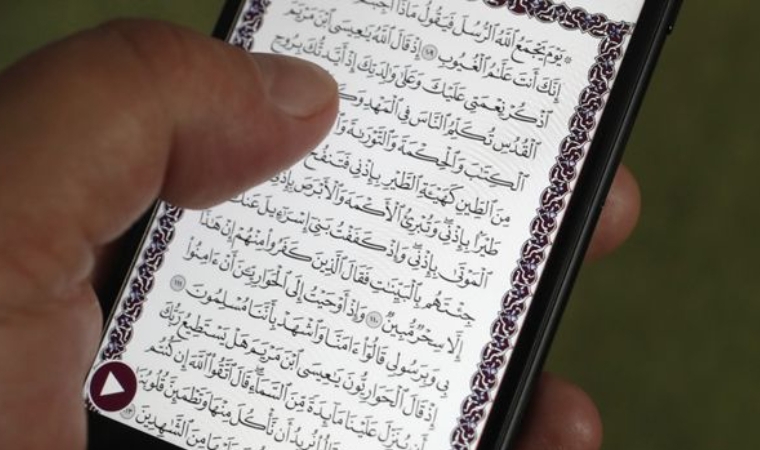 ۞ يَوْمَ يَجْمَعُ ٱللَّهُ ٱلرُّسُلَ فَيَقُولُ مَاذَآ أُجِبْتُمْ
إِنَّكَ أَنتَ عَلَّٰمُ ٱلْغُيُوبِ ١٠٩ إِذْ قَالَ ٱللَّهُ يَٰعِيسَى ٱبْنَ مَرْيَمَ
ٱذْكُرْ نِعْمَتِى عَلَيْكَ وَعَلَىٰ وَٰلِدَتِكَ إِذْ أَيَّدتُّكَ بِرُوحِ
ٱلْقُدُسِ تُكَلِّمُ ٱلنَّاسَ فِى ٱلْمَهْدِ
ٱلْكِتَٰبَ وَٱلْحِكْمَةَ وَٱلتَّوْرَىٰةَ
مِنَ ٱلطِّينِ كَهَيْـَٔةِ ٱلطَّيْرِ بِإِذْنِى فَتَنفُخُ
طَيْرًۢا بِإِذْنِى وَتُبْرِئُ ٱلْأَكْمَهَ وَٱلْأَبْرَصَ بِإِذْنِى
ٱلْمَوْتَىٰ بِإِذْنِى وَإِذْ كَفَفْتُ بَنِىٓ إِسْرَٰٓءِيلَ عَنكَ
جِئْتَهُم بِٱلْبَيِّنَٰتِ فَقَالَ ٱلَّذِينَ كَفَرُوا۟ مِنْهُمْ إِنْ هَٰذَآ
إِلَّا سِحْرٌ مُّبِينٌ ١١٠ وَإِذْ أَوْحَيْتُ إِلَى ٱلْحَوَارِيِّـۧنَ أَنْ ءَامِنُوا۟
بِى وَبِرَسُولِى قَالُوٓا۟ ءَامَنَّا وَٱشْهَدْ بِأَنَّنَا مُسْلِمُونَ ١١١
إِذْ قَالَ ٱلْحَوَارِيُّونَ يَٰعِيسَى ٱبْنَ مَرْيَمَ هَلْ يَسْتَطِيعُ رَبُّكَ
أَن يُنَزِّلَ عَلَيْنَا مَآئِدَةً مِّنَ ٱلسَّمَآءِ قَالَ ٱتَّقُوا۟ ٱللَّهَ إِن كُنتُم
قَالُوا۟ نُرِيدُ أَن نَّأْكُلَ مِنْهَا وَتَطْمَئِنَّ قُلُوبُنَا
مِنَ ٱلشَّٰهِدِينَ ١١٣